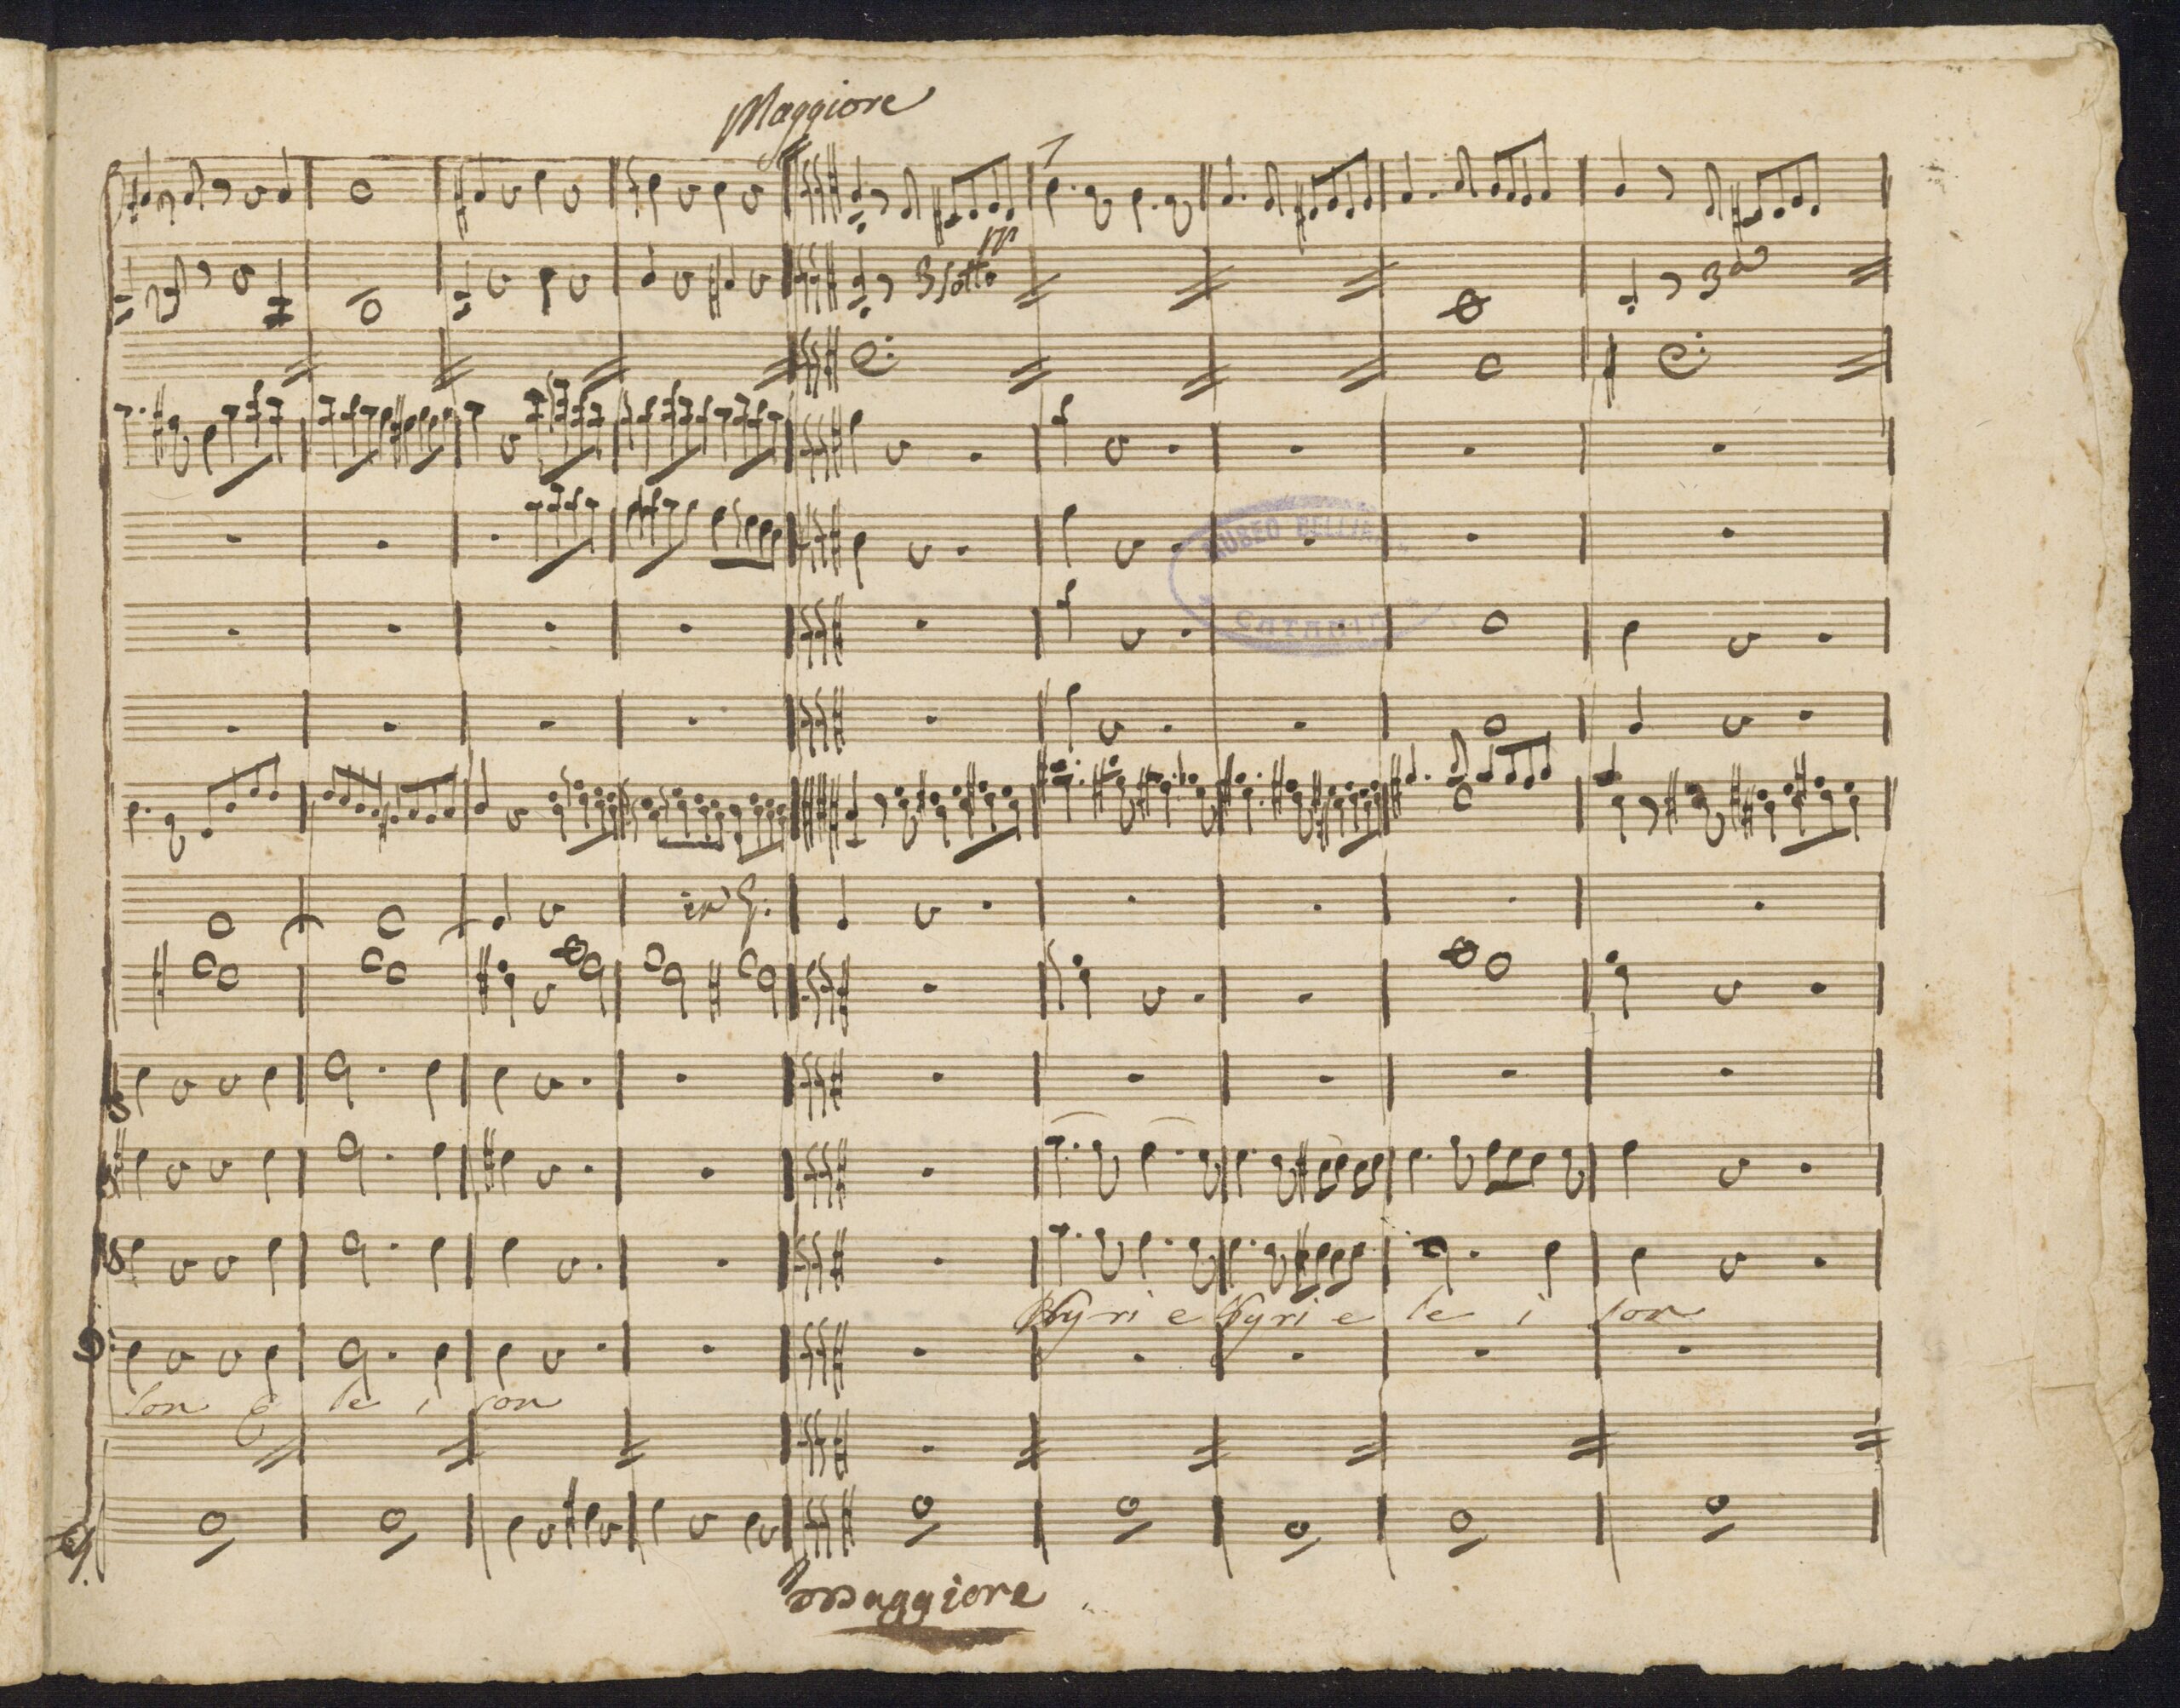 Maggiore
3 sotto
3a
MUSEO BELLI
CATANIA
Kyri e Kyri e le i son
son e le i son
Maggiore